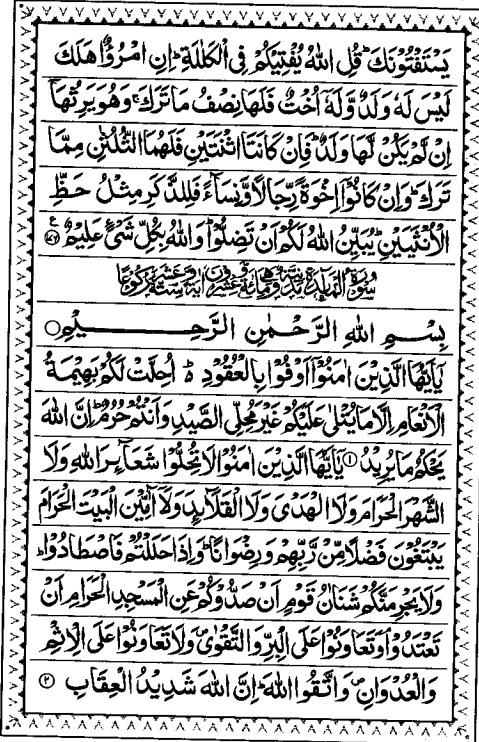 يَسْتَفْتُوْنَكَ ؕ قُلِ اللّٰهُ يُفْتِيْكُمْ فِى الْكَلٰلَةِ ؕ اِنِ امْرُؤٌا هَلَكَ
لَيْسَ لَهٗ وَلَدٌ وَّلَهٗۤ اُخْتٌ فَلَهَا نِصْفُ مَا تَرَكَ ۚ وَهُوَ يَرِثُهَاۤ
اِنْ لَّمْ يَكُنْ لَّهَا وَلَدٌ ؕ فَاِنْ كَانَتَا اثْنَتَيْنِ فَلَهُمَا الثُّلُثٰنِ مِمَّا
تَرَكَ ؕ وَاِنْ كَانُوْۤا اِخْوَةً رِّجَالًا وَّنِسَآءً فَلِلذَّكَرِ مِثْلُ حَظِّ
الْاُنْثَيَيْنِ ؕ يُبَيِّنُ اللّٰهُ لَكُمْ اَنْ تَضِلُّوْا ؕ وَاللّٰهُ بِكُلِّ شَىْءٍ عَلِيْمٌ
سُوْرَةُ الْمَآئِدَةِ مَدَنِيَّةٌ
بِسْمِ اللّٰهِ الرَّحْمٰنِ الرَّحِيْمِ
يٰۤاَيُّهَا الَّذِيْنَ اٰمَنُوْۤا اَوْفُوْا بِالْعُقُوْدِ ؕ اُحِلَّتْ لَكُمْ بَهِيْمَةُ
الْاَنْعَامِ اِلَّا مَا يُتْلٰى عَلَيْكُمْ غَيْرَ مُحِلِّى الصَّيْدِ وَاَنْتُمْ حُرُمٌ ؕ اِنَّ اللّٰهَ
يَحْكُمُ مَا يُرِيْدُ ﴿۱﴾ يٰۤاَيُّهَا الَّذِيْنَ اٰمَنُوْا لَا تُحِلُّوْا شَعَآئِرَ اللّٰهِ وَلَا
الشَّهْرَ الْحَرَامَ وَلَا الْهَدْىَ وَلَا الْقَلَآئِدَ وَلَاۤ اٰمِّيْنَ الْبَيْتَ الْحَرَامَ
يَبْتَغُوْنَ فَضْلًا مِّنْ رَّبِّهِمْ وَرِضْوَانًا ؕ وَاِذَا حَلَلْتُمْ فَاصْطَادُوْا ؕ
وَلَا يَجْرِمَنَّكُمْ شَنَاٰنُ قَوْمٍ اَنْ صَدُّوْكُمْ عَنِ الْمَسْجِدِ الْحَرَامِ اَنْ
تَعْتَدُوْا ۘ وَتَعَاوَنُوْا عَلَى الْبِرِّ وَالتَّقْوٰى ۪ وَلَا تَعَاوَنُوْا عَلَى الْاِثْمِ
وَالْعُدْوَانِ ۪ وَاتَّقُوا اللّٰهَ ؕ اِنَّ اللّٰهَ شَدِيْدُ الْعِقَابِ ﴿۲﴾